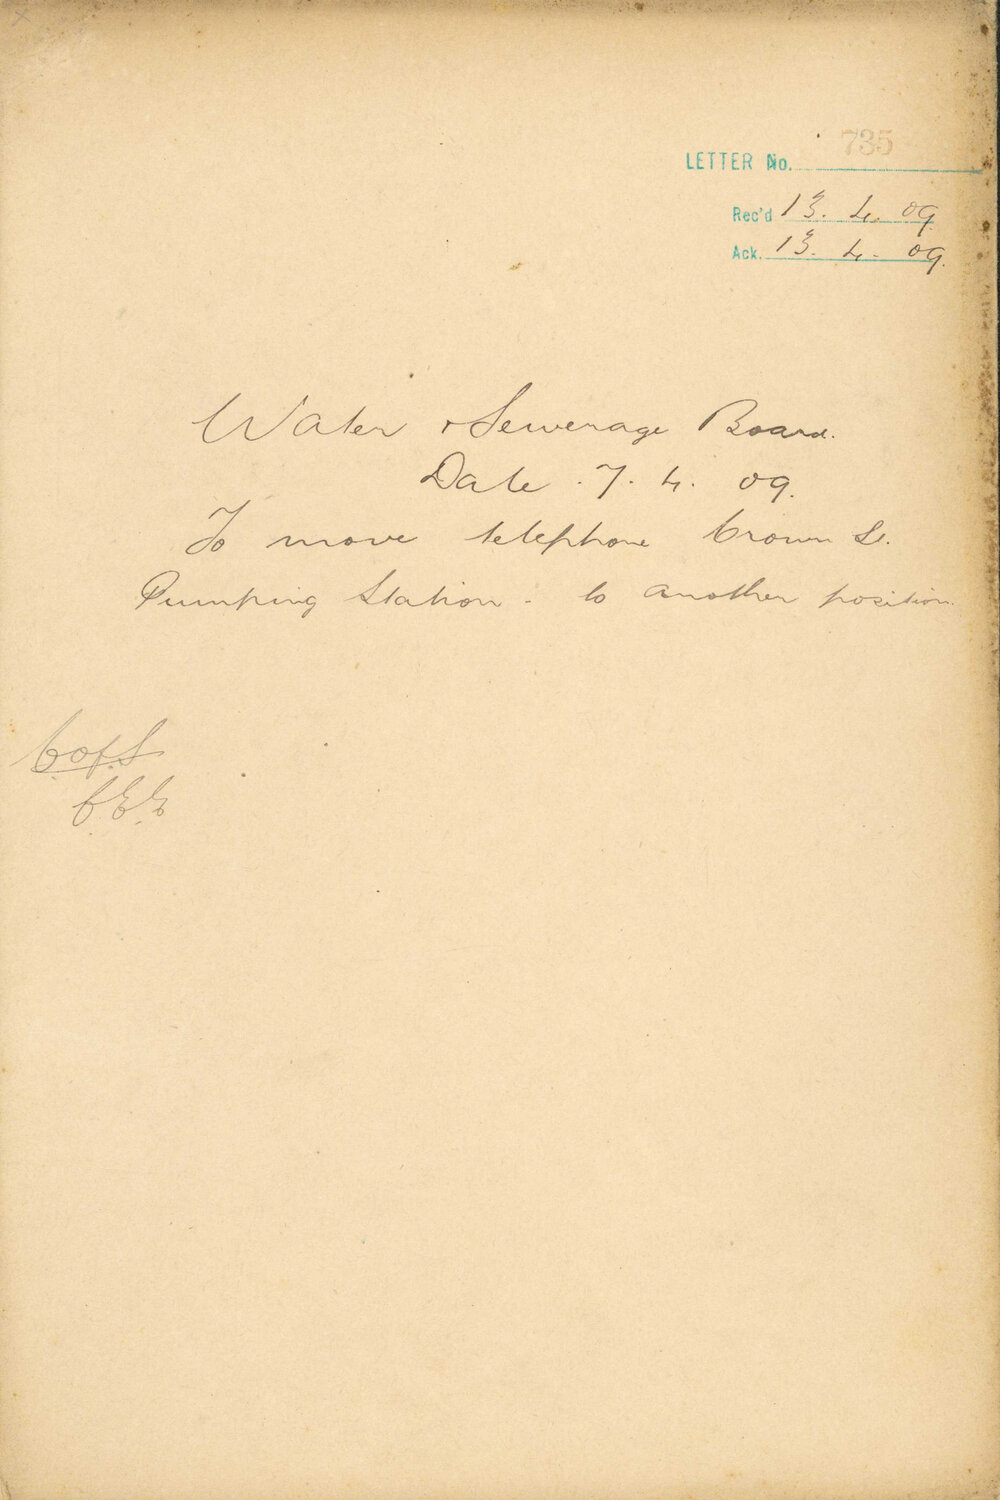 735
LETTER No.
Rec'd 13. 4. 09.
Ack. 13. 4. 09.
Water & Sewerage Board.
Date. 7. 4. 09.
To move telephone Crown St.
Pumping Station - to another position.
C. of. S
C.E.E